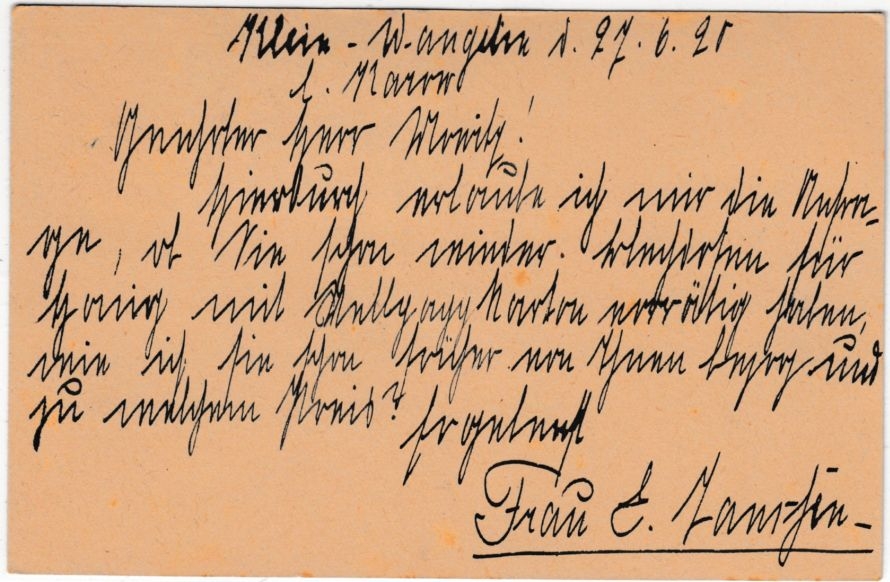 Klein-Wangelin d. 27.6.20
b. Karow
Geehrter Herr Moritz!
Hierdurch erlaube ich mir die Anfra-
ge, ob Sie schon wieder Blechdosen für
Honig mit Wellpappkarton vorrätig haben,
wie ich sie schon früher von Ihnen bezog und
zu welchem Preis?
Ergebenst
Frau E.